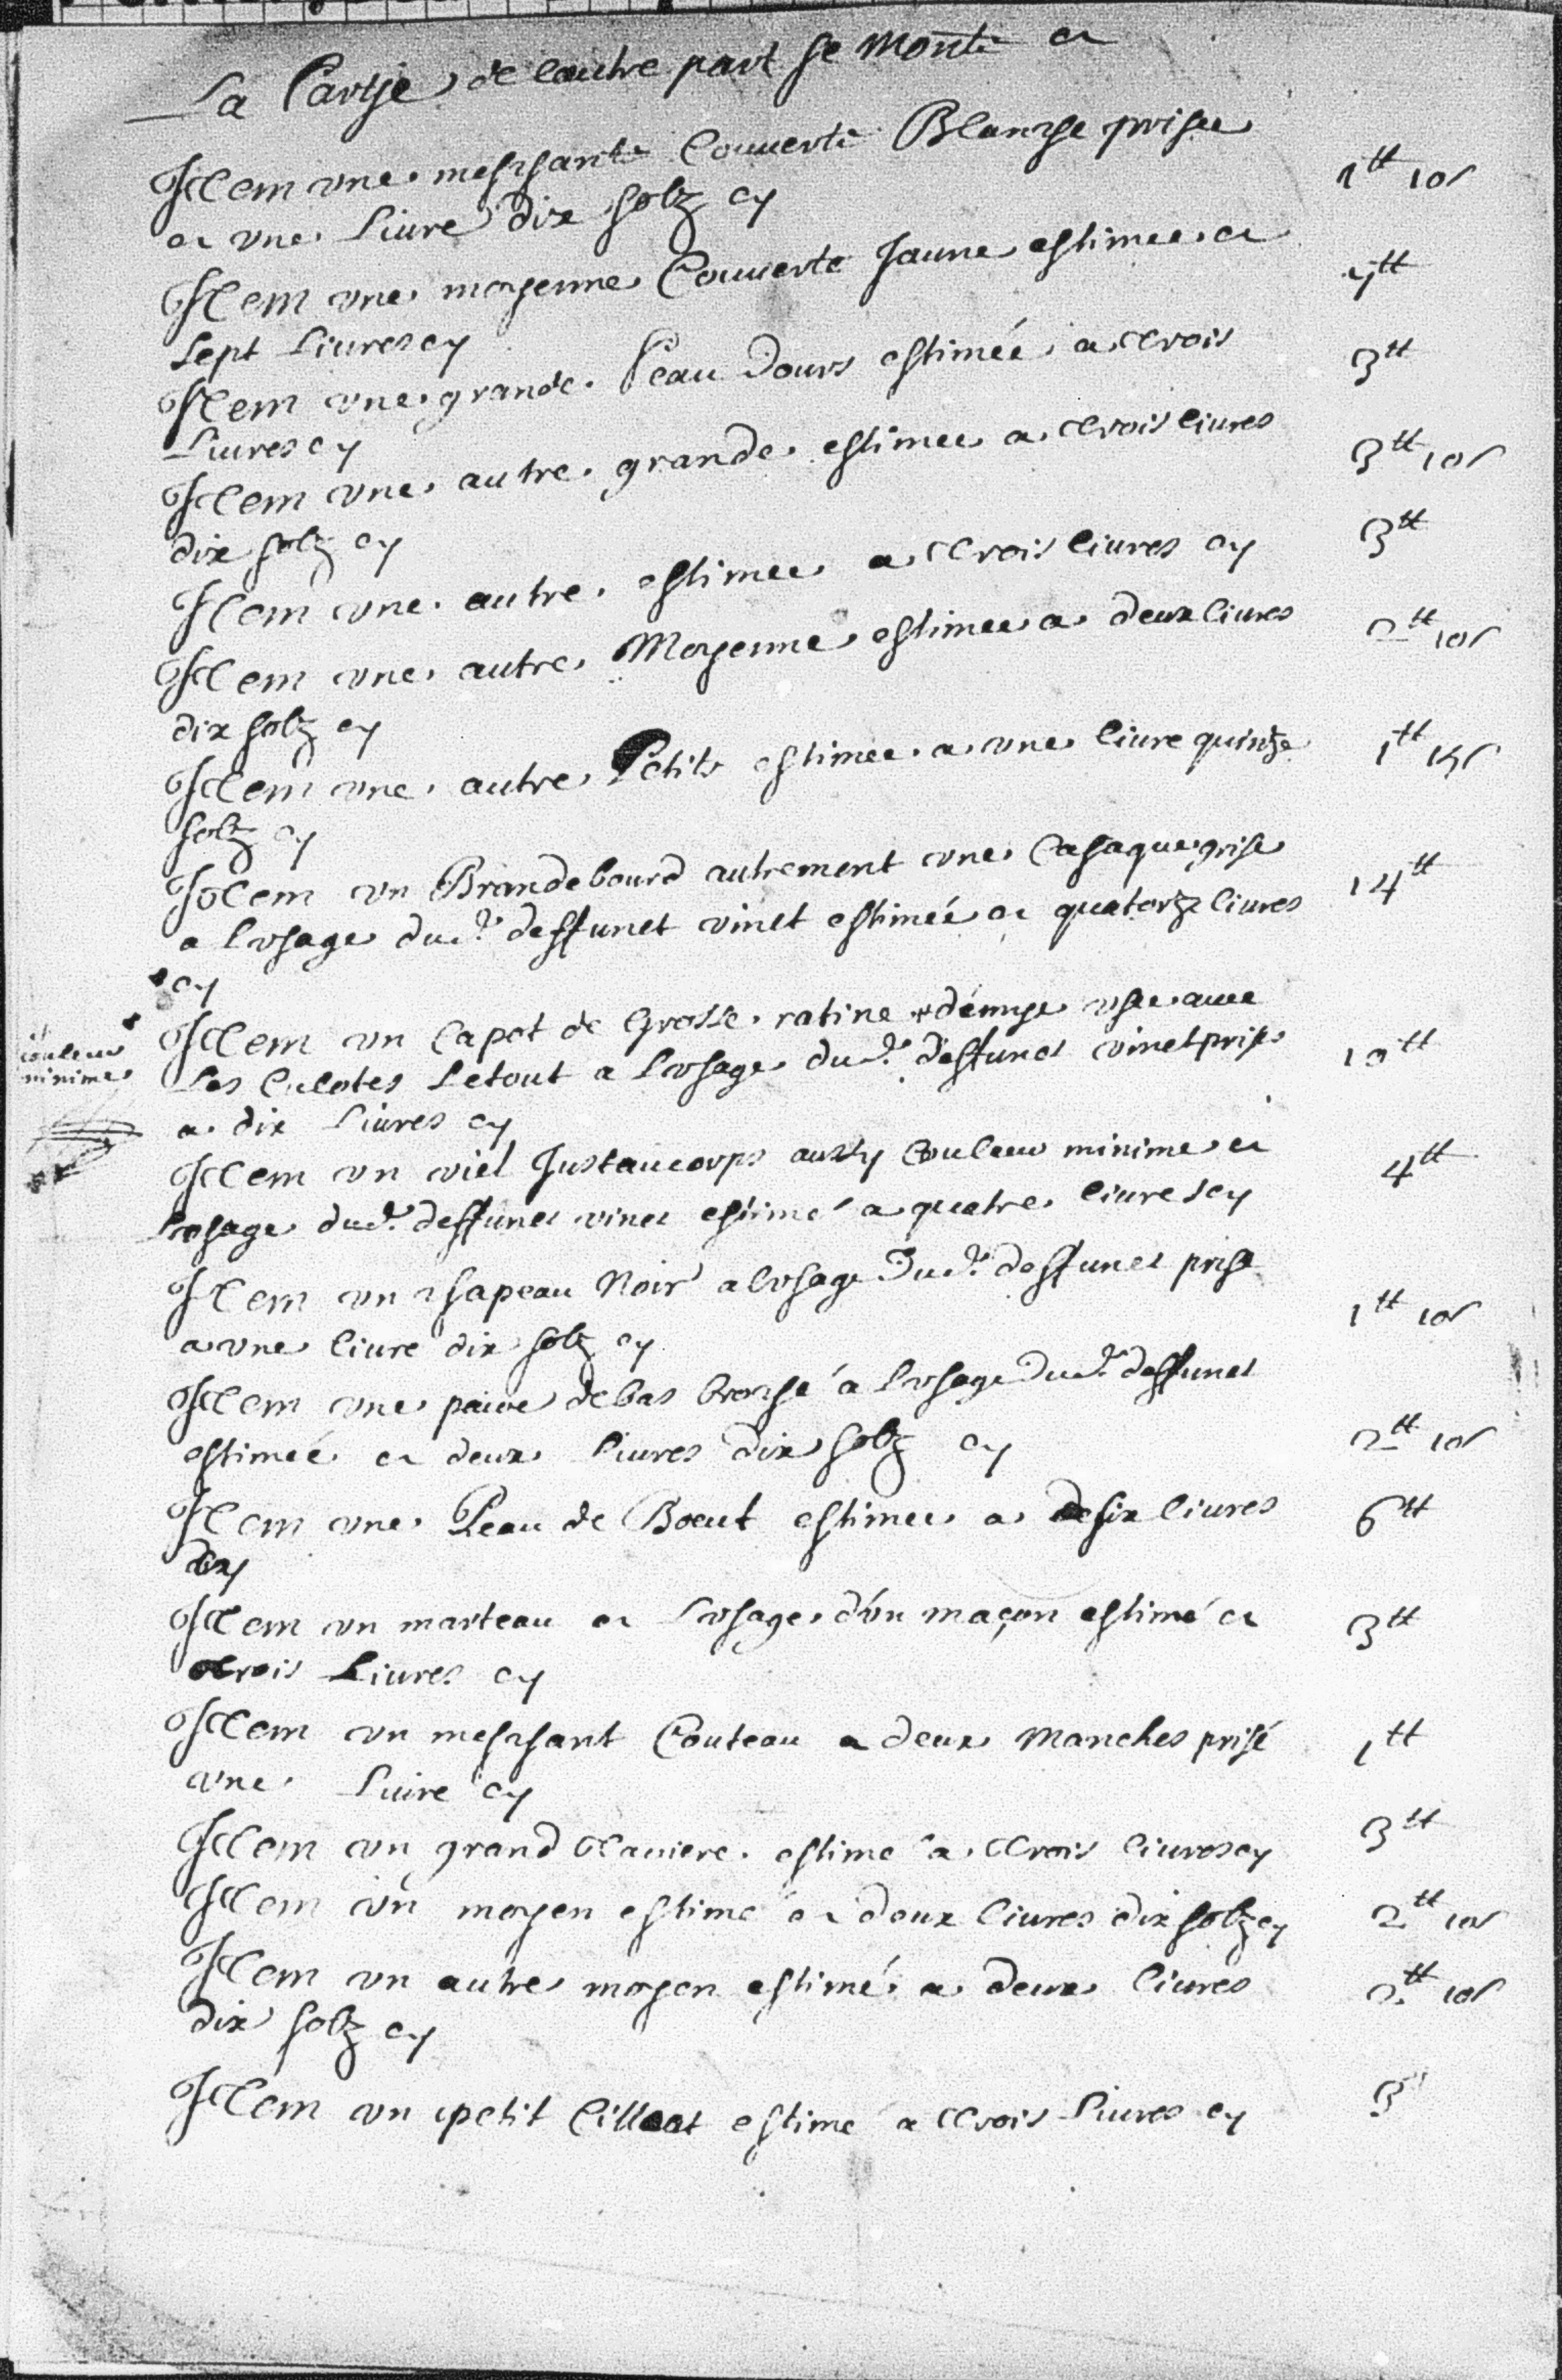 La Partje de lautre part se monte a
Item une meschante Couuerte Blanche prisee
a vne Liure dix solz cy 1tt 10s
Item vne moyenne Couuerte Jaune estimee a
sept Liures cy 7tt
Item vne grande Peau Dours estimée a trois
Liures cy 3tt
Item vne autre grande estimee a trois liures
dix solz cy 3tt 10s
Item vne autre estimee a trois liures cy 3tt
Item vne autre Moyenne estimee a deux liures
dix solz cy 2tt 10s
Item vne autre Petite estimee a vne liure quinze
solz cy 1tt 15s
Item vn Brandebourd autrement vne Casaque grise
a lvsage dud. deffunct vinet estimée a quatorze liures
cy 14tt
Item vn Capot de Grosse ratine démye vsee auec
Les Culotes Letout a Lvsage dud. deffunct vinet prise
a dix Liures cy 10tt
couleur
minime
Item vn viel Justaucorps aussy Couleur minime a
Lvsage dud. deffunct vinet estimé a quatre liures cy 4tt
Item vn chapeau Noir a lvsage Dud. deffunct prise
a vne liure dix solz cy 1tt 10s
Item vne paire de bas broché a Lvsage Dud. deffunct
estimeé a deux Liures dix solz cy 2tt 10s
Item vne Peau de Boeuf estimee a six liures
cy 6tt
Item vn marteau a Lvsage d'vn maçon estimé a
trois Liures cy 3tt
Item vn meschant Couteau a deux Manches prisé
vne Liure cy 1tt
Item vn grand tariere estime a trois liures cy 3tt
Item vn moyen estime a deux liures dix solz cy 2tt 10s
Item vn autre moyen estimé a deux liures
dix solz cy 2tt 10s
Item vn petit estimé a trois Liures cy 3